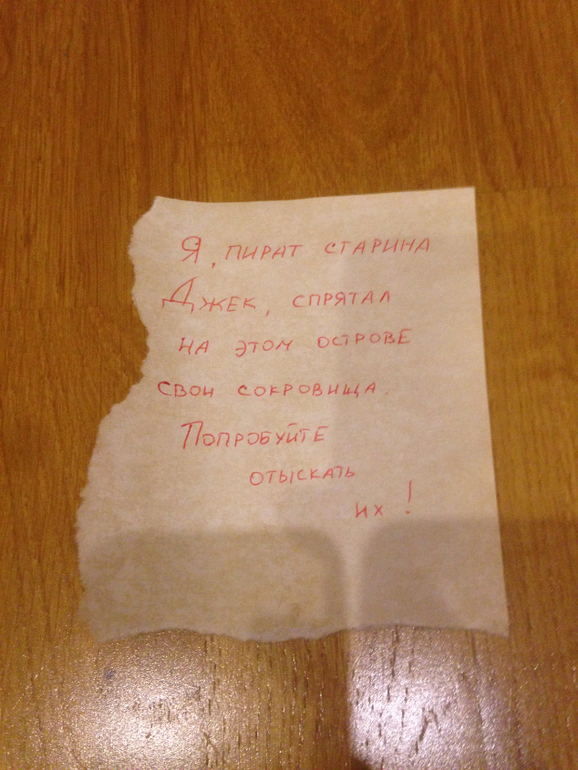 Я, ПИРАТ СТАРИНА
ДЖЕК, СПРЯТАЛ
НА ЭТОМ ОСТРОВЕ
СВОИ СОКРОВИЩА.
ПОПРОБУЙТЕ
ОТЫСКАТЬ
ИХ!